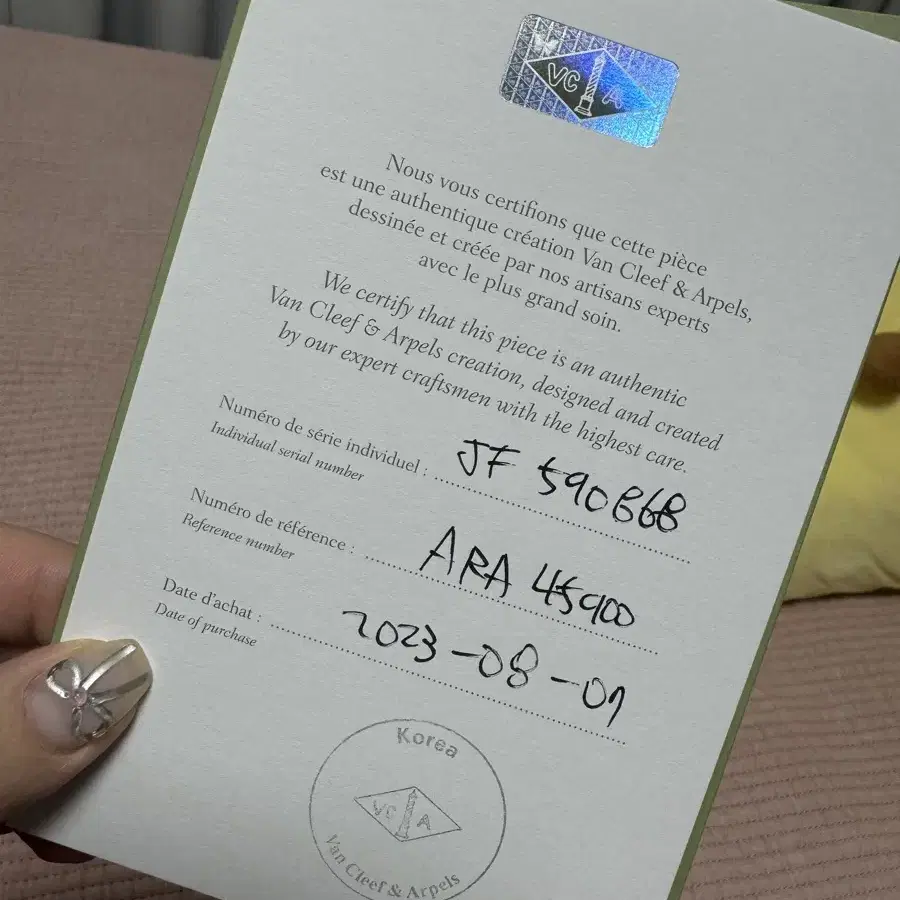 VC A
Nous vous certifions que cette pièce
est une authentique création Van Cleef & Arpels,
dessinée et créée par nos artisans experts
avec le plus grand soin.
We certify that this piece is an authentic
Van Cleef & Arpels creation, designed and created
by our expert craftsmen with the highest care.
Numéro de série individuel : JF 590868
Individual serial number
Numéro de référence : ARA 45900
Reference number
Date d'achat : 2023-08-01
Date of purchase
Korea
VC A
Van Cleef & Arpels